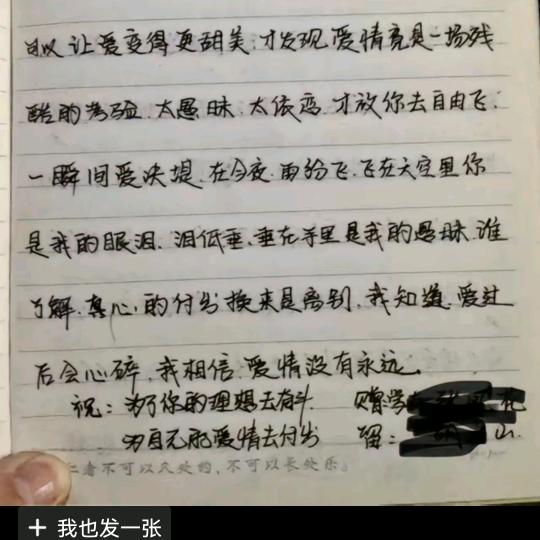 以 让爱变得更甜美.才发现爱情竟是一场残
酷的考验.太愚昧.太依恋.才放你去自由飞.
一瞬间爱决堤.在今夜.雨纷飞.飞在天空里你
是我的眼泪.泪低垂.垂在手里是我的愚昧.谁
了解.真心的付出换来是离别.我知道.爱过
后会心碎.我相信.爱情没有永远.
祝：为了你的理想去奋斗. 赠学
为自己的爱情去付出 留： 山.
二者不可以久处约，不可以长处乐。
我也发一张